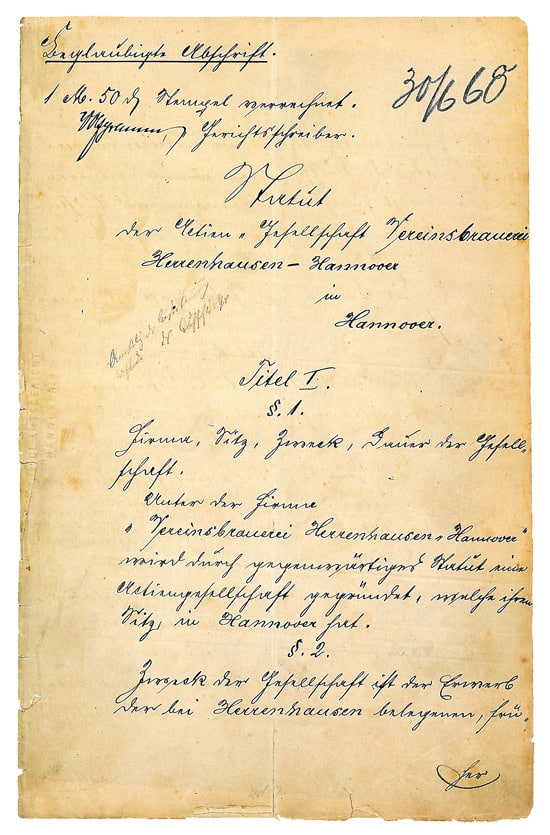 Beglaubigte Abschrift.
30/668
1 M. 50 d Stempel verrechnet.
Gerichtsschreiber.
Statut
der Actien-Gesellschaft Vereinsbrauerei
Herrenhausen - Hannover
in
Hannover.
Titel I.
§. 1.
Firma, Sitz, Zweck, Dauer der Gesell-
schaft.
Unter der Firma
"Vereinsbrauerei Herrenhausen-Hannover"
wird durch gegenwärtiges Statut eine
Actiengesellschaft gegründet, welche ihren
Sitz in Hannover hat.
§. 2.
Zweck der Gesellschaft ist der Erwerb
der bei Herrenhausen belegenen, frü-
her